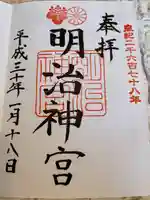 皇紀二千六百七十八年
奉拝
明治神宮
平成三十年一月十八日